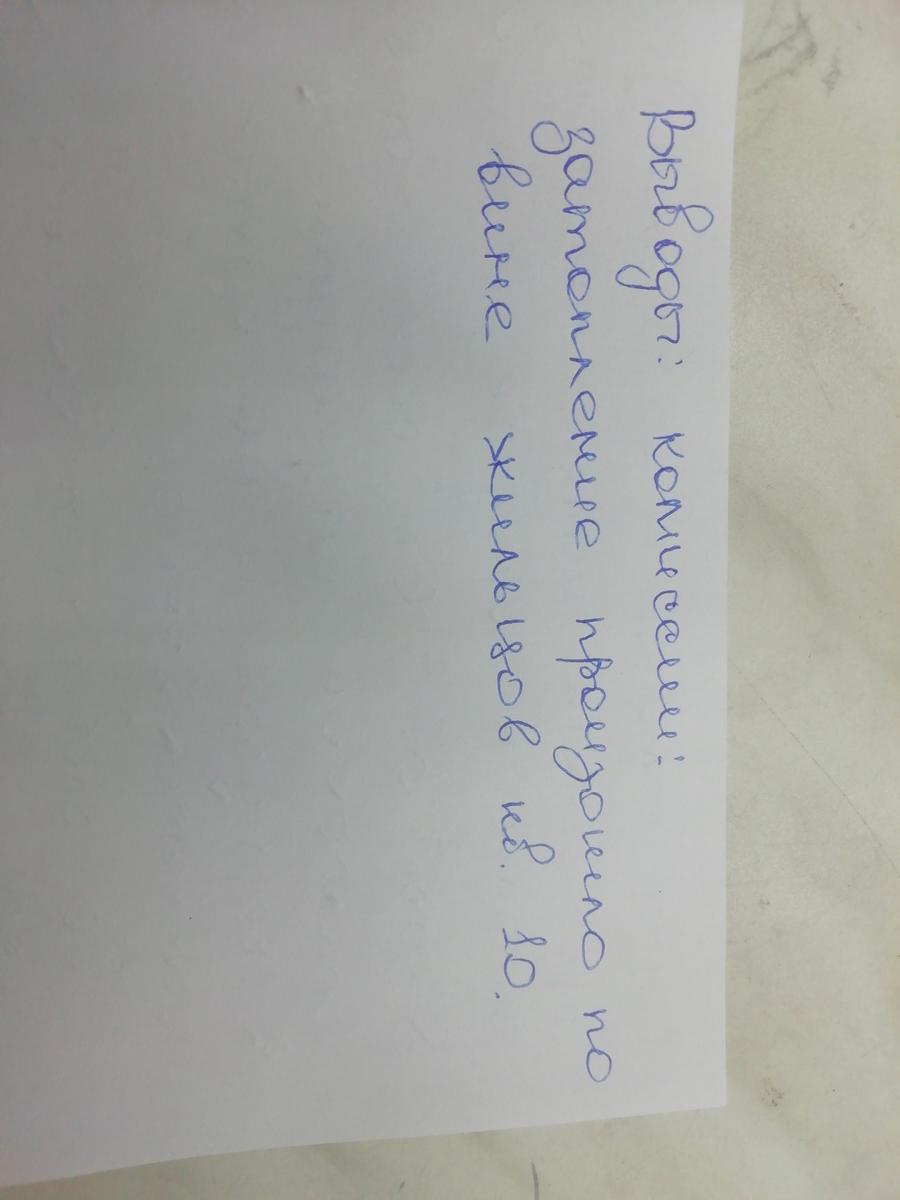 Выводы: комиссии:
затопление произошло по
вине жильцов кв. 10.